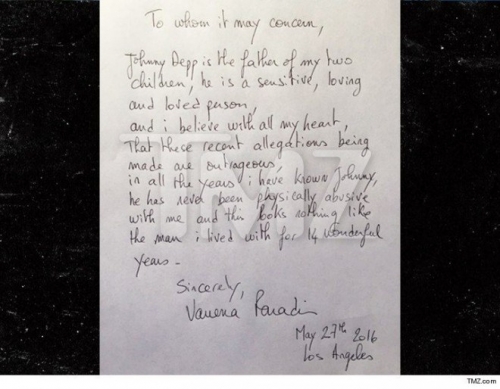 To whom it may concern,
Johnny Depp is the father of my two
children, he is a sensitive, loving
and loved person,
and i believe with all my heart,
that these recent allegations being
made are outrageous,
in all the years i have known Johnny,
he has never been physically abusive
with me and this looks nothing like
the man i lived with for 14 wonderful
years -
Sincerely,
Vanessa Paradis
May 27th 2016
Los Angeles
TMZ
TMZ.com